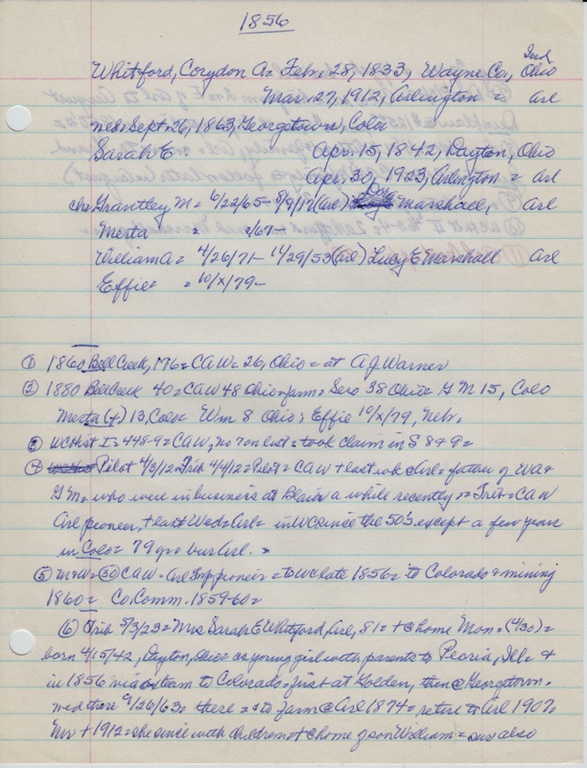 1856
Ind
Whitford, Corydon A = Feb, 28, 1833, Wayne Co, Ohio
Mar. 27, 1912, Arlington = Arl
wed = Sept 26, 1863, Georgetown, Colo
Sarah E Apr. 15, 1842, Dayton, Ohio
Apr. 30, 1923, Arlington = Arl
ch = Grantley M = 6/22/65 - 8/9/17 (Arl) Dora Marshall, Arl
Merta = /67-
William A = 4/26/71 - 11/29/53 (Arl) Lucy E Marshall Arl
Effie = = 10/x/79-
① 1860 Bell Creek, 196 = CAW = 26, Ohio = at A J Warner
② 1880 Bell Creek 40 = CAW 48 Ohio = farm = Sero 38 Ohio = G M 15, Colo
Merta (f) 13, Colo = Wm 8 Ohio; Effie 10/x/79, Neb.
WC Hist I = 448-9 = CAW, no 7 on list = took claim in S 8 & 9 =
④ Pilot 4/3/12 = Trib 4/4/12 = Pilot = CAW + last wk @ Arl = father of WA &
G M = who were in business at Blair a while recently = Trib = CAW
Arl pioneer, + last Wed = Arl = in WC since the 50's except a few years
in Colo = 79 yrs = bur Arl. =
⑤ CAW = Arl pioneer = to WC late 1856 = to Colorado & mining
1860 = Co. Comm. 1859-60 =
⑥ Trib 5/3/23 = Mrs Sarah E Whitford, Arl, 81 = + @ home Mon = (4/30) =
born 4/15/42, Dayton, Ohio = as young girl with parents to Peoria, Ill = &
in 1856 via ox team to Colorado = first at Golden, then @ Georgetown =
wed there 9/26/63 = there = to farm @ Arl 1874 = retire to Arl 1907 =
Mr + 1912 = she since with children = + @ home of son William = sur also